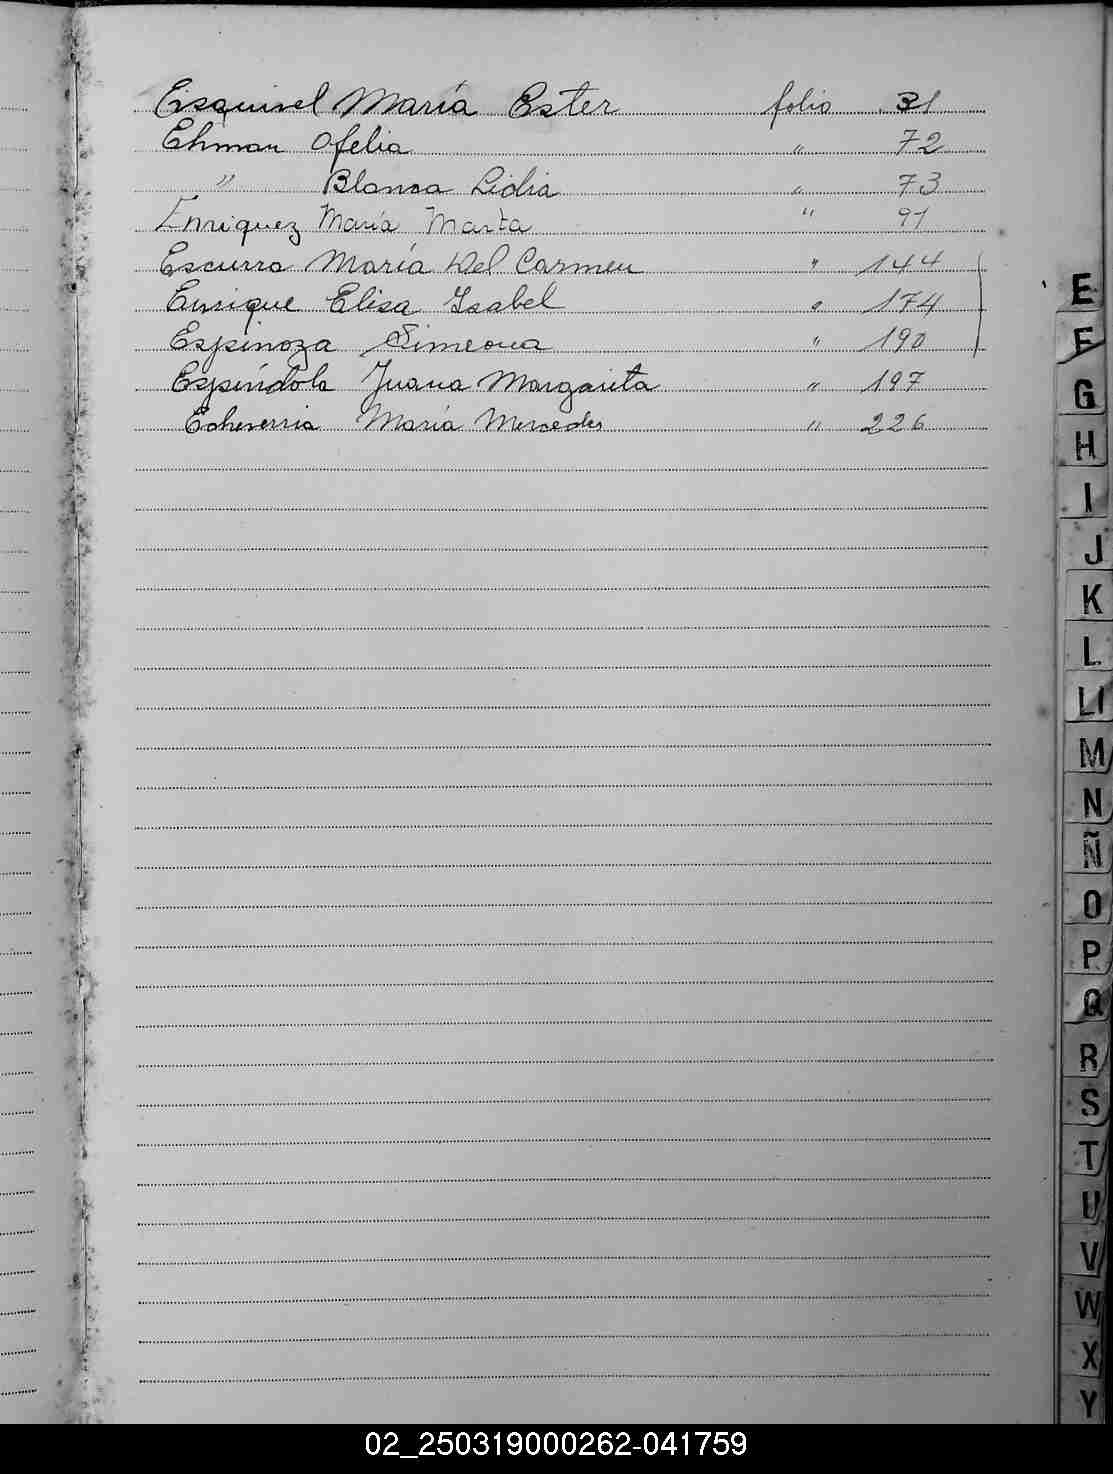 Esquivel María Ester folio 31
Ehman Ofelia " 72
" Blanca Lidia " 73
Enriquez María Marta " 91
Escurra María Del Carmen " 144
Enrique Elisa Isabel " 174
Espinoza Simeona " 190
Espíndola Juana Margarita " 197
Echeverria María Mercedes " 226
E
F
G
H
I
J
K
L
Ll
M
N
Ñ
O
P
Q
R
S
T
U
V
W
X
Y
02_250319000262-041759